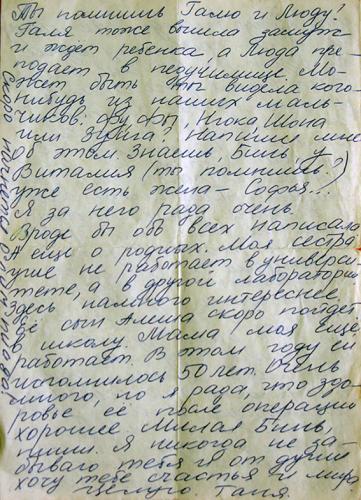 Ты помнишь Галю и Люду?
Галя тоже вышла замуж
и ждет ребенка, а Люда пре-
подает в педучилище. Мо-
жет быть ты видела кого-
нибудь из наших маль-
чиков: Фу Фы, Нгока Шона
или Зунга? Напиши мне
об этом. Знаешь, Бинь, у
Виталия (ты помнишь?)
уже есть жена - Софья..?
Я за него рада очень.
Вроде бы обо всех написала
А ещё о родных. Моя сестра
уже не работает в универси-
тете, а в другой лаборатории
Здесь намного интереснее,
Её сын Алеша скоро пойдет
в школу. Мама моя ещё
работает. В этом году ей
исполнилось 50 лет. Очень
много, но я рада, что здо-
ровье её после операции
хорошее. Милая Бинь,
пиши. Я никогда не за-
бываю тебя и от души
хочу тебе счастья и мира
Целую. Таня.
скоро